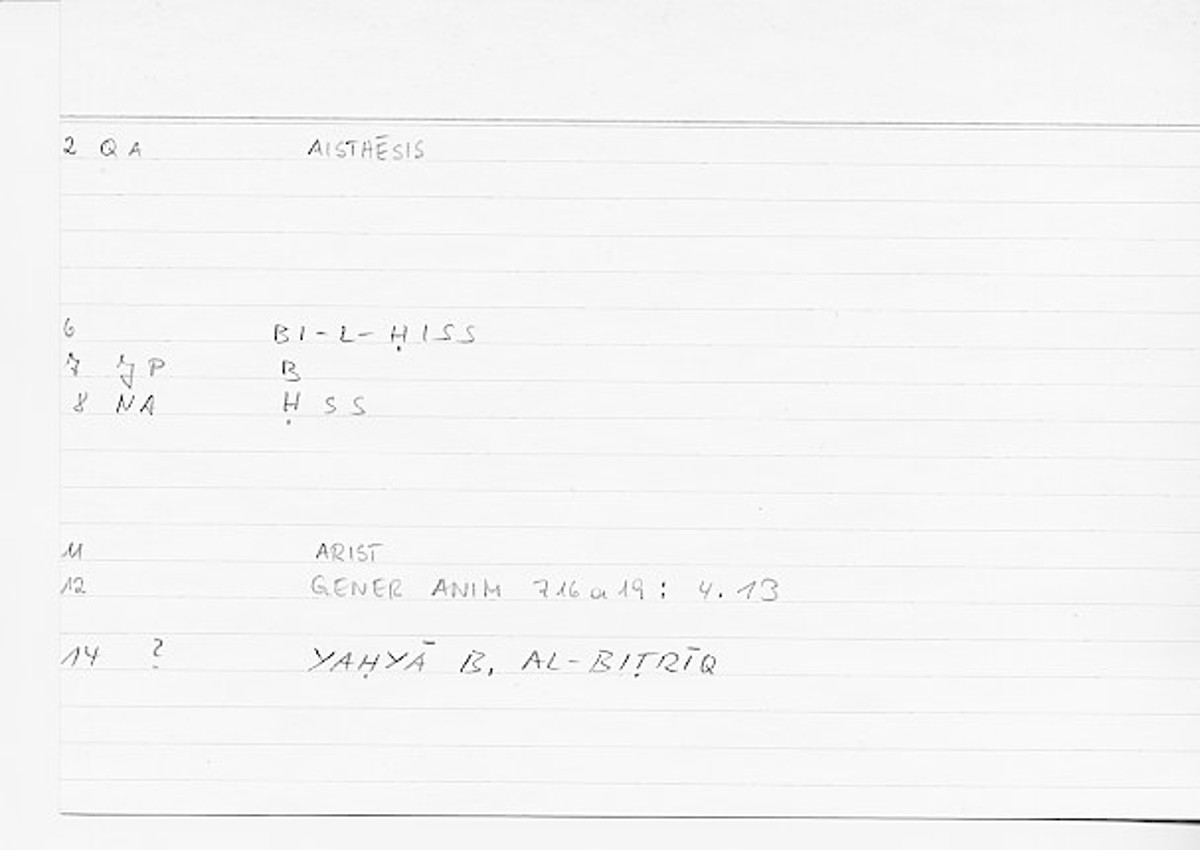 2 Q A AISTHĒSIS
6 BI-L-ḤISS
7 JP B
8 NA Ḥ S S
11 ARIST
12 GENER ANIM 716a19: 4.13
14 ? YAḤYĀ B. AL-BIṬRĪQ